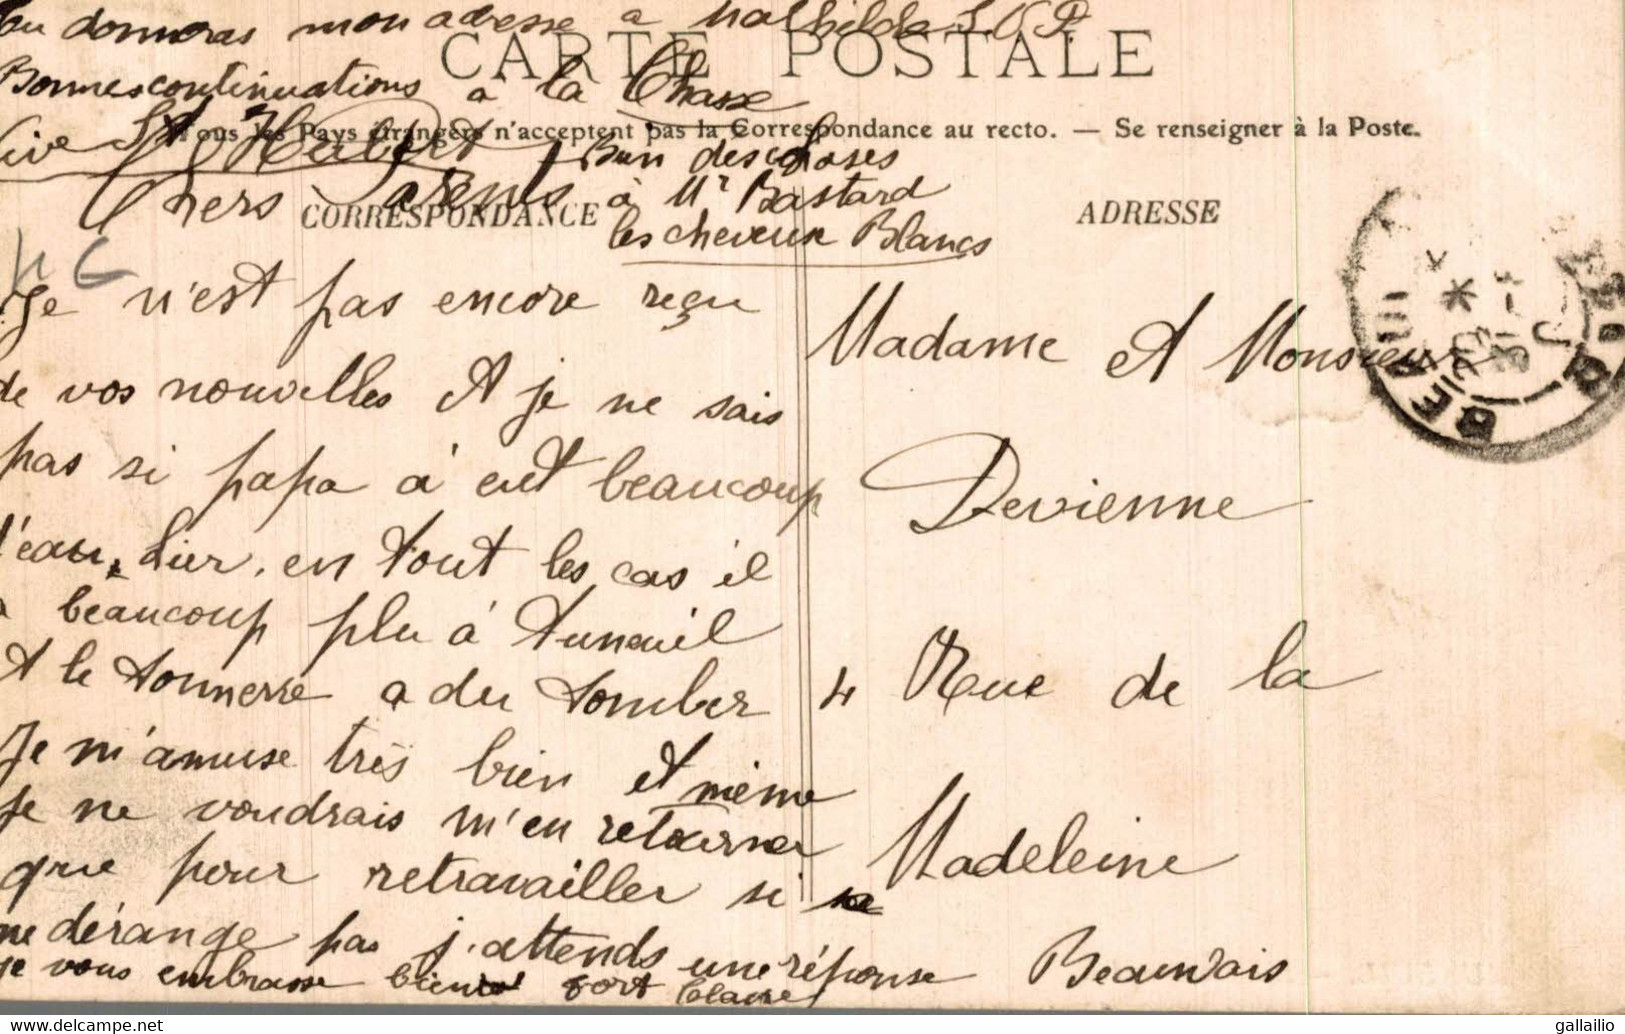 tu donneras mon adresse a Mathilde S.V.P.
CARTE POSTALE
Bonnes continuations a la Chasse
Vive St Hubert
Tous les Pays étrangers n'acceptent pas la Correspondance au recto. — Se renseigner à la Poste.
Bien des choses
à Mr Bastard
les cheveux Blancs
Chers Parents
CORRESPONDANCE
ADRESSE
Je n'est pas encore reçu
de vos nouvelles et je ne sais
pas si papa à eut beaucoup
d'eau hier, en tout les cas il
a beaucoup plu à Auneuil
et le tonnerre a du tomber
Je m'amuse très bien et même
je ne voudrais m'en retourner
que pour retravailler si
ne dérange pas j'attends une réponse
je vous embrasse bien fort Claire
Madame et Monsieur
Devienne
4 Rue de la
Madeleine
Beauvais
gallailio